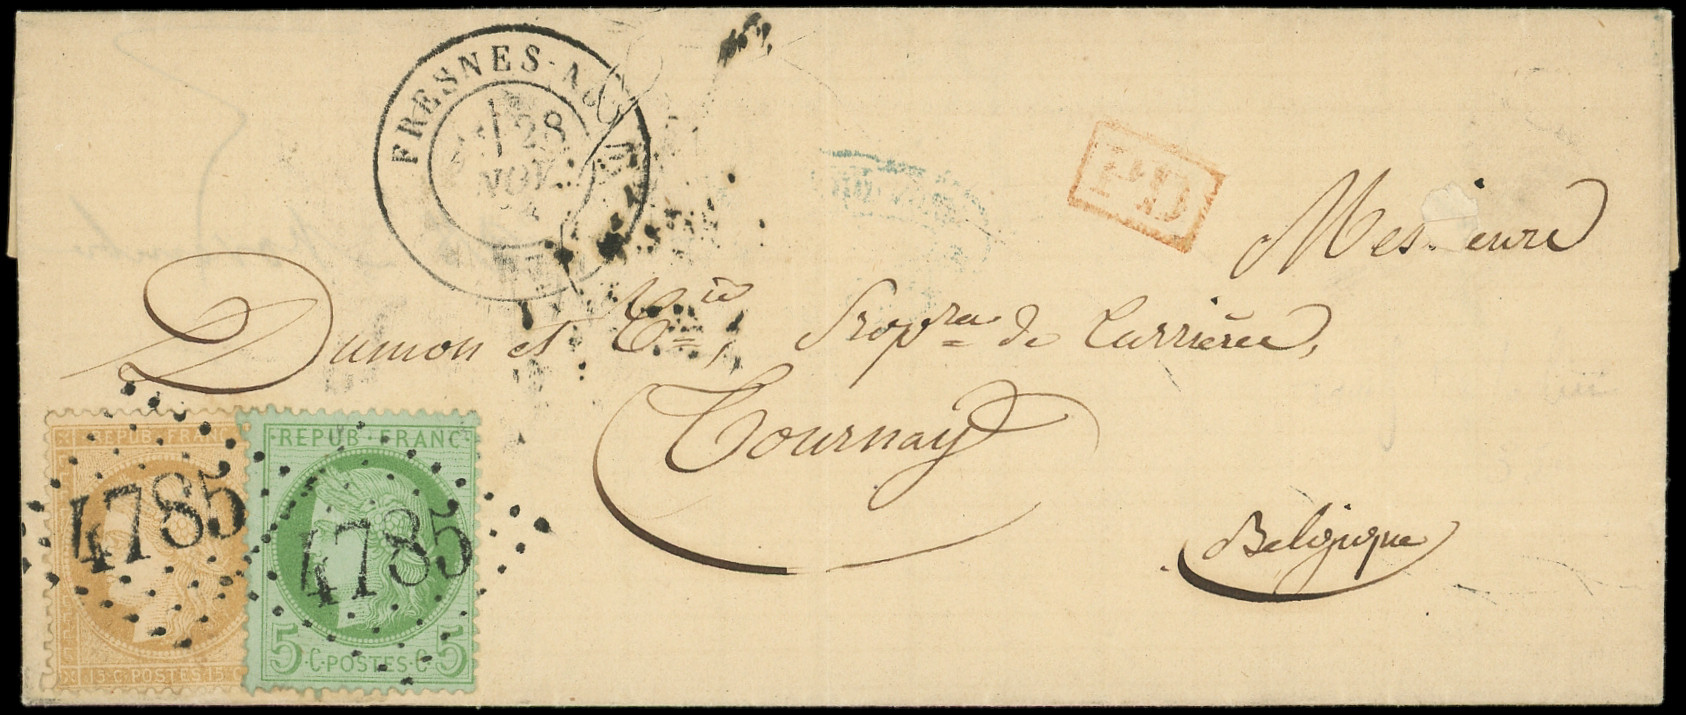 FRESNES-
28
NOV.
PD
Messieurs
Dumon et Cie, Propres de Carrières,
Tournay
Belgique
REPUB·FRANC
4785
15·C·POSTES·15·C
·REPUB·FRANC·
4785
5·C·POSTES·C·5